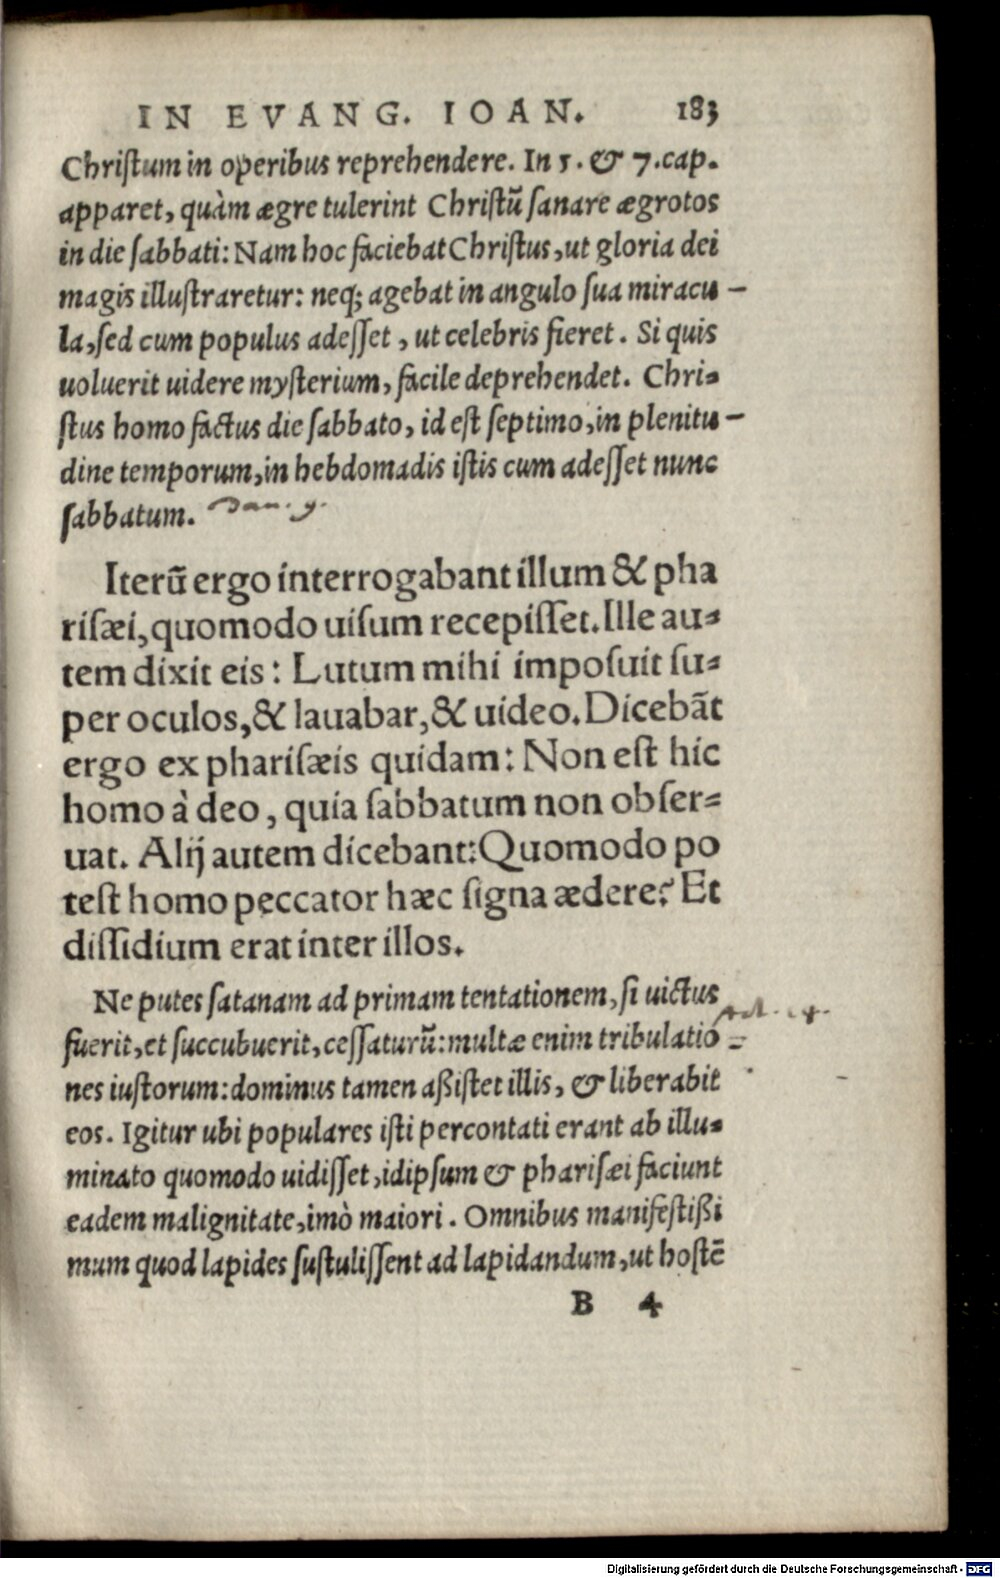 IN EVANG. IOAN. 183
Chriſtum in operibus reprehendere. In 5. & 7. cap.
apparet, quàm ægre tulerint Chriſtū ſanare ægrotos
in die ſabbati: Nam hoc faciebat Chriſtus, ut gloria dei
magis illuſtraretur: neq; agebat in angulo ſua miracu-
la, ſed cum populus adeſſet, ut celebris fieret. Si quis
uoluerit uidere myſterium, facile deprehendet. Chri-
ſtus homo factus die ſabbato, id eſt ſeptimo, in plenitu-
dine temporum, in hebdomadis iſtis cum adeſſet nunc
ſabbatum. Dan. 9.
Iterū ergo interrogabant illum & pha
riſæi, quomodo uiſum recepiſſet. Ille au-
tem dixit eis: Lutum mihi impoſuit ſu-
per oculos, & lauabar, & uideo. Dicebāt
ergo ex phariſæis quidam: Non eſt hic
homo à deo, quia ſabbatum non obſer-
uat. Alij autem dicebant: Quomodo po
teſt homo peccator hæc ſigna ædere? Et
diſſidium erat inter illos.
Ne putes ſatanam ad primam tentationem, ſi uictus
fuerit, et ſuccubuerit, ceſſaturū: multæ enim tribulatio=
nes iuſtorum: dominus tamen aßiſtet illis, & liberabit
eos. Igitur ubi populares iſti percontati erant ab illu-
minato quomodo uidiſſet, idipſum & phariſæi faciunt
eadem malignitate, imò maiori. Omnibus manifeſtißi
mum quod lapides ſuſtuliſſent ad lapidandum, ut hoſtē
B 4
Digitalisierung gefördert durch die Deutsche Forschungsgemeinschaft - DFG